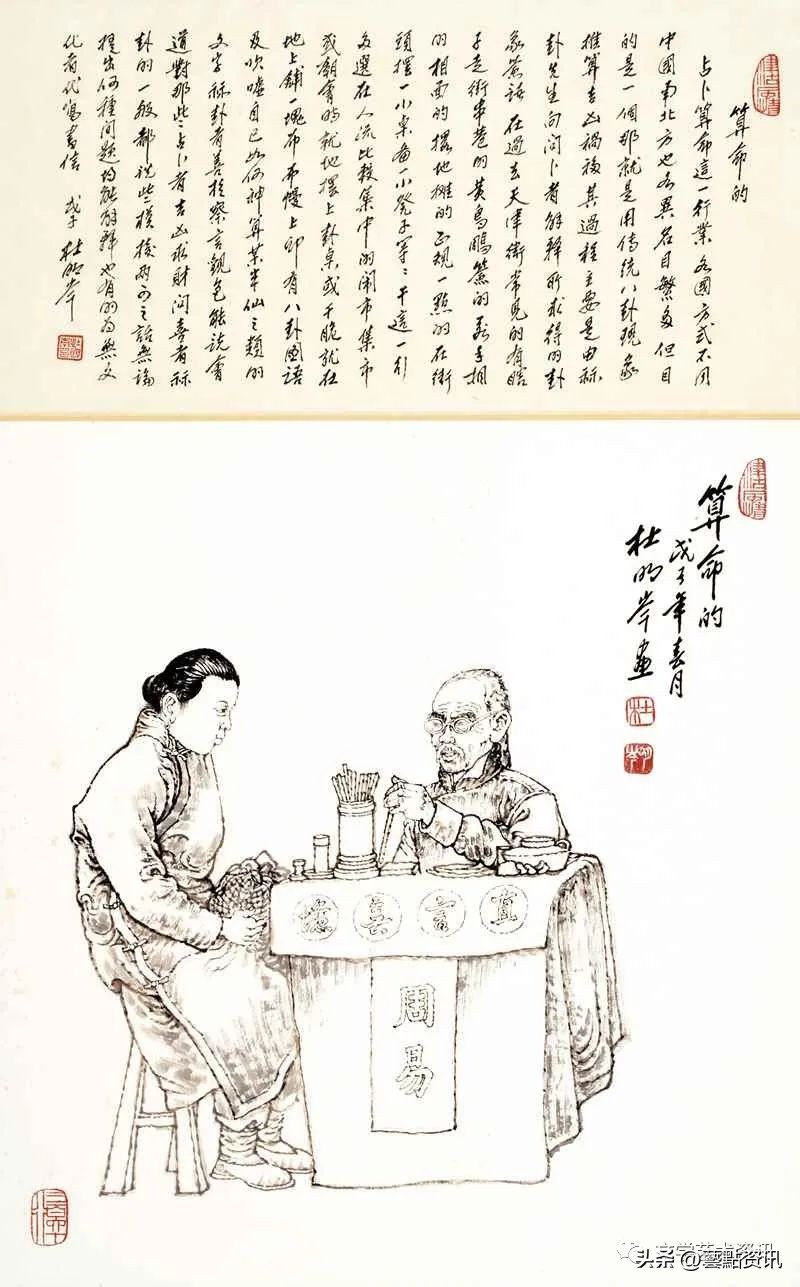 算命的
占卜算命這一行業各國方式不同
中國南北方也各異名目繁多但目
的是一個那就是用傳統八卦現象
推算吉凶禍福其過程主要是由稱
卦先生向問卜者解釋所求得的卦
象簽語在過去天津衛常見的有瞎
子走街串巷的黃鳥鵰簽的看手相
的相面的擺地攤的正規一點的在街
頭擺一小桌備一小凳子等等干這一行
多選在人流比較集中的鬧市集市
或廟會時就地擺上卦桌或干脆就在
地上鋪一塊布布幔上印有八卦圖語
及吹噓自己如何神算某半仙之類的
文字稱卦者善於察言觀色能說會
道對那些占卜者吉凶求財問喜者稱
卦的一般都說些模棱兩可之話無論
提出何種問題均能解釋也有的為無文
化者代寫書信 戊子 杜明岑
算命的
戊子年春月
杜明岑畫
直言喜
周易
头条@藝點资讯